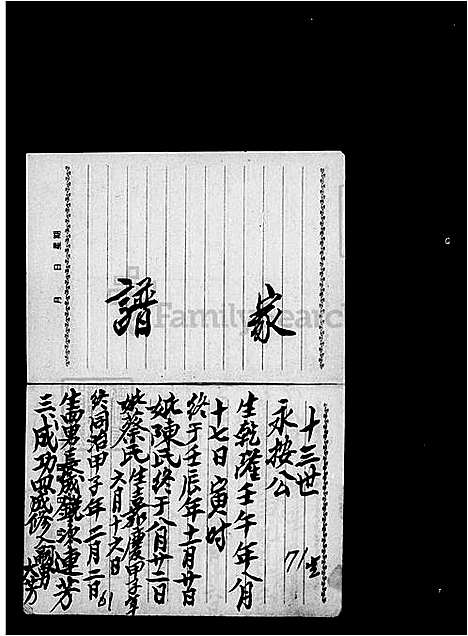 家譜
月 日 星期
FamilySearch
十三世
永按公
71生
生乾隆壬午年八月
十七日寅时
终于壬辰年十一月廿日
妣陳氏终于八月廿二日
妣蔡氏生嘉慶甲子年
六月十六日
终同治甲子年二月二日
61
生四男長成鏡次連芳
三成功四成修